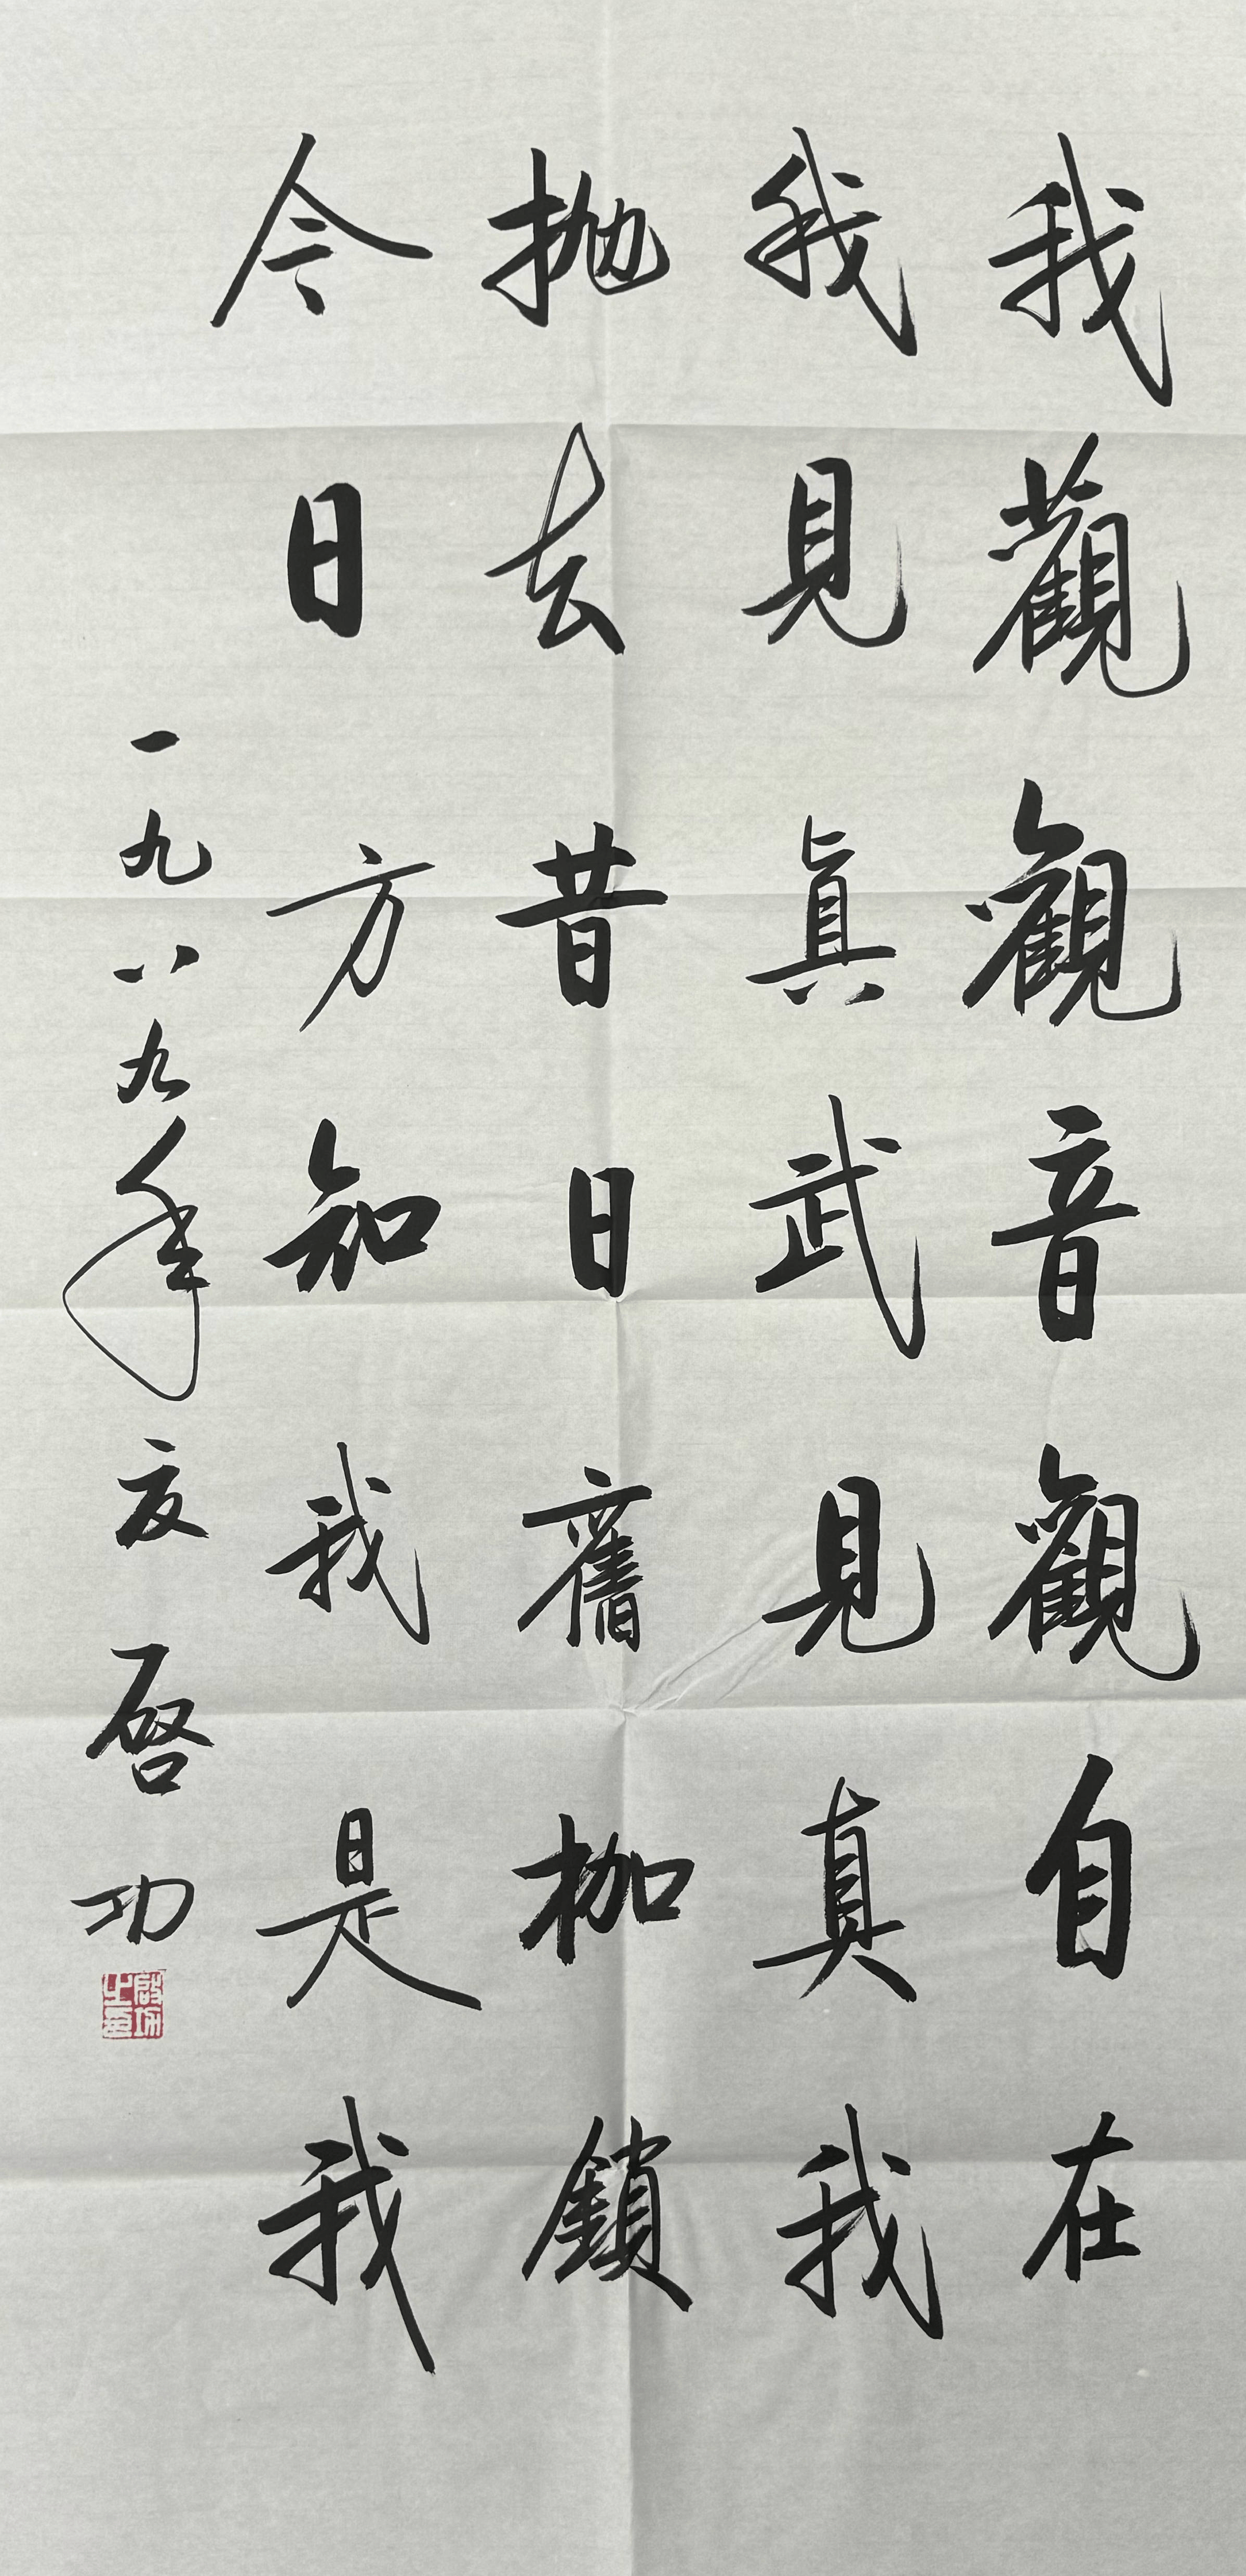 我觀觀音觀自在
我見真武見真我
拋去昔日舊枷鎖
今日方知我是我
一九八九年夏 啓功
啟功之印